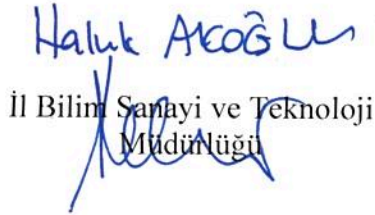 Haluk AKOĞLU
İl Bilim Sanayi ve Teknoloji
Müdürlüğü